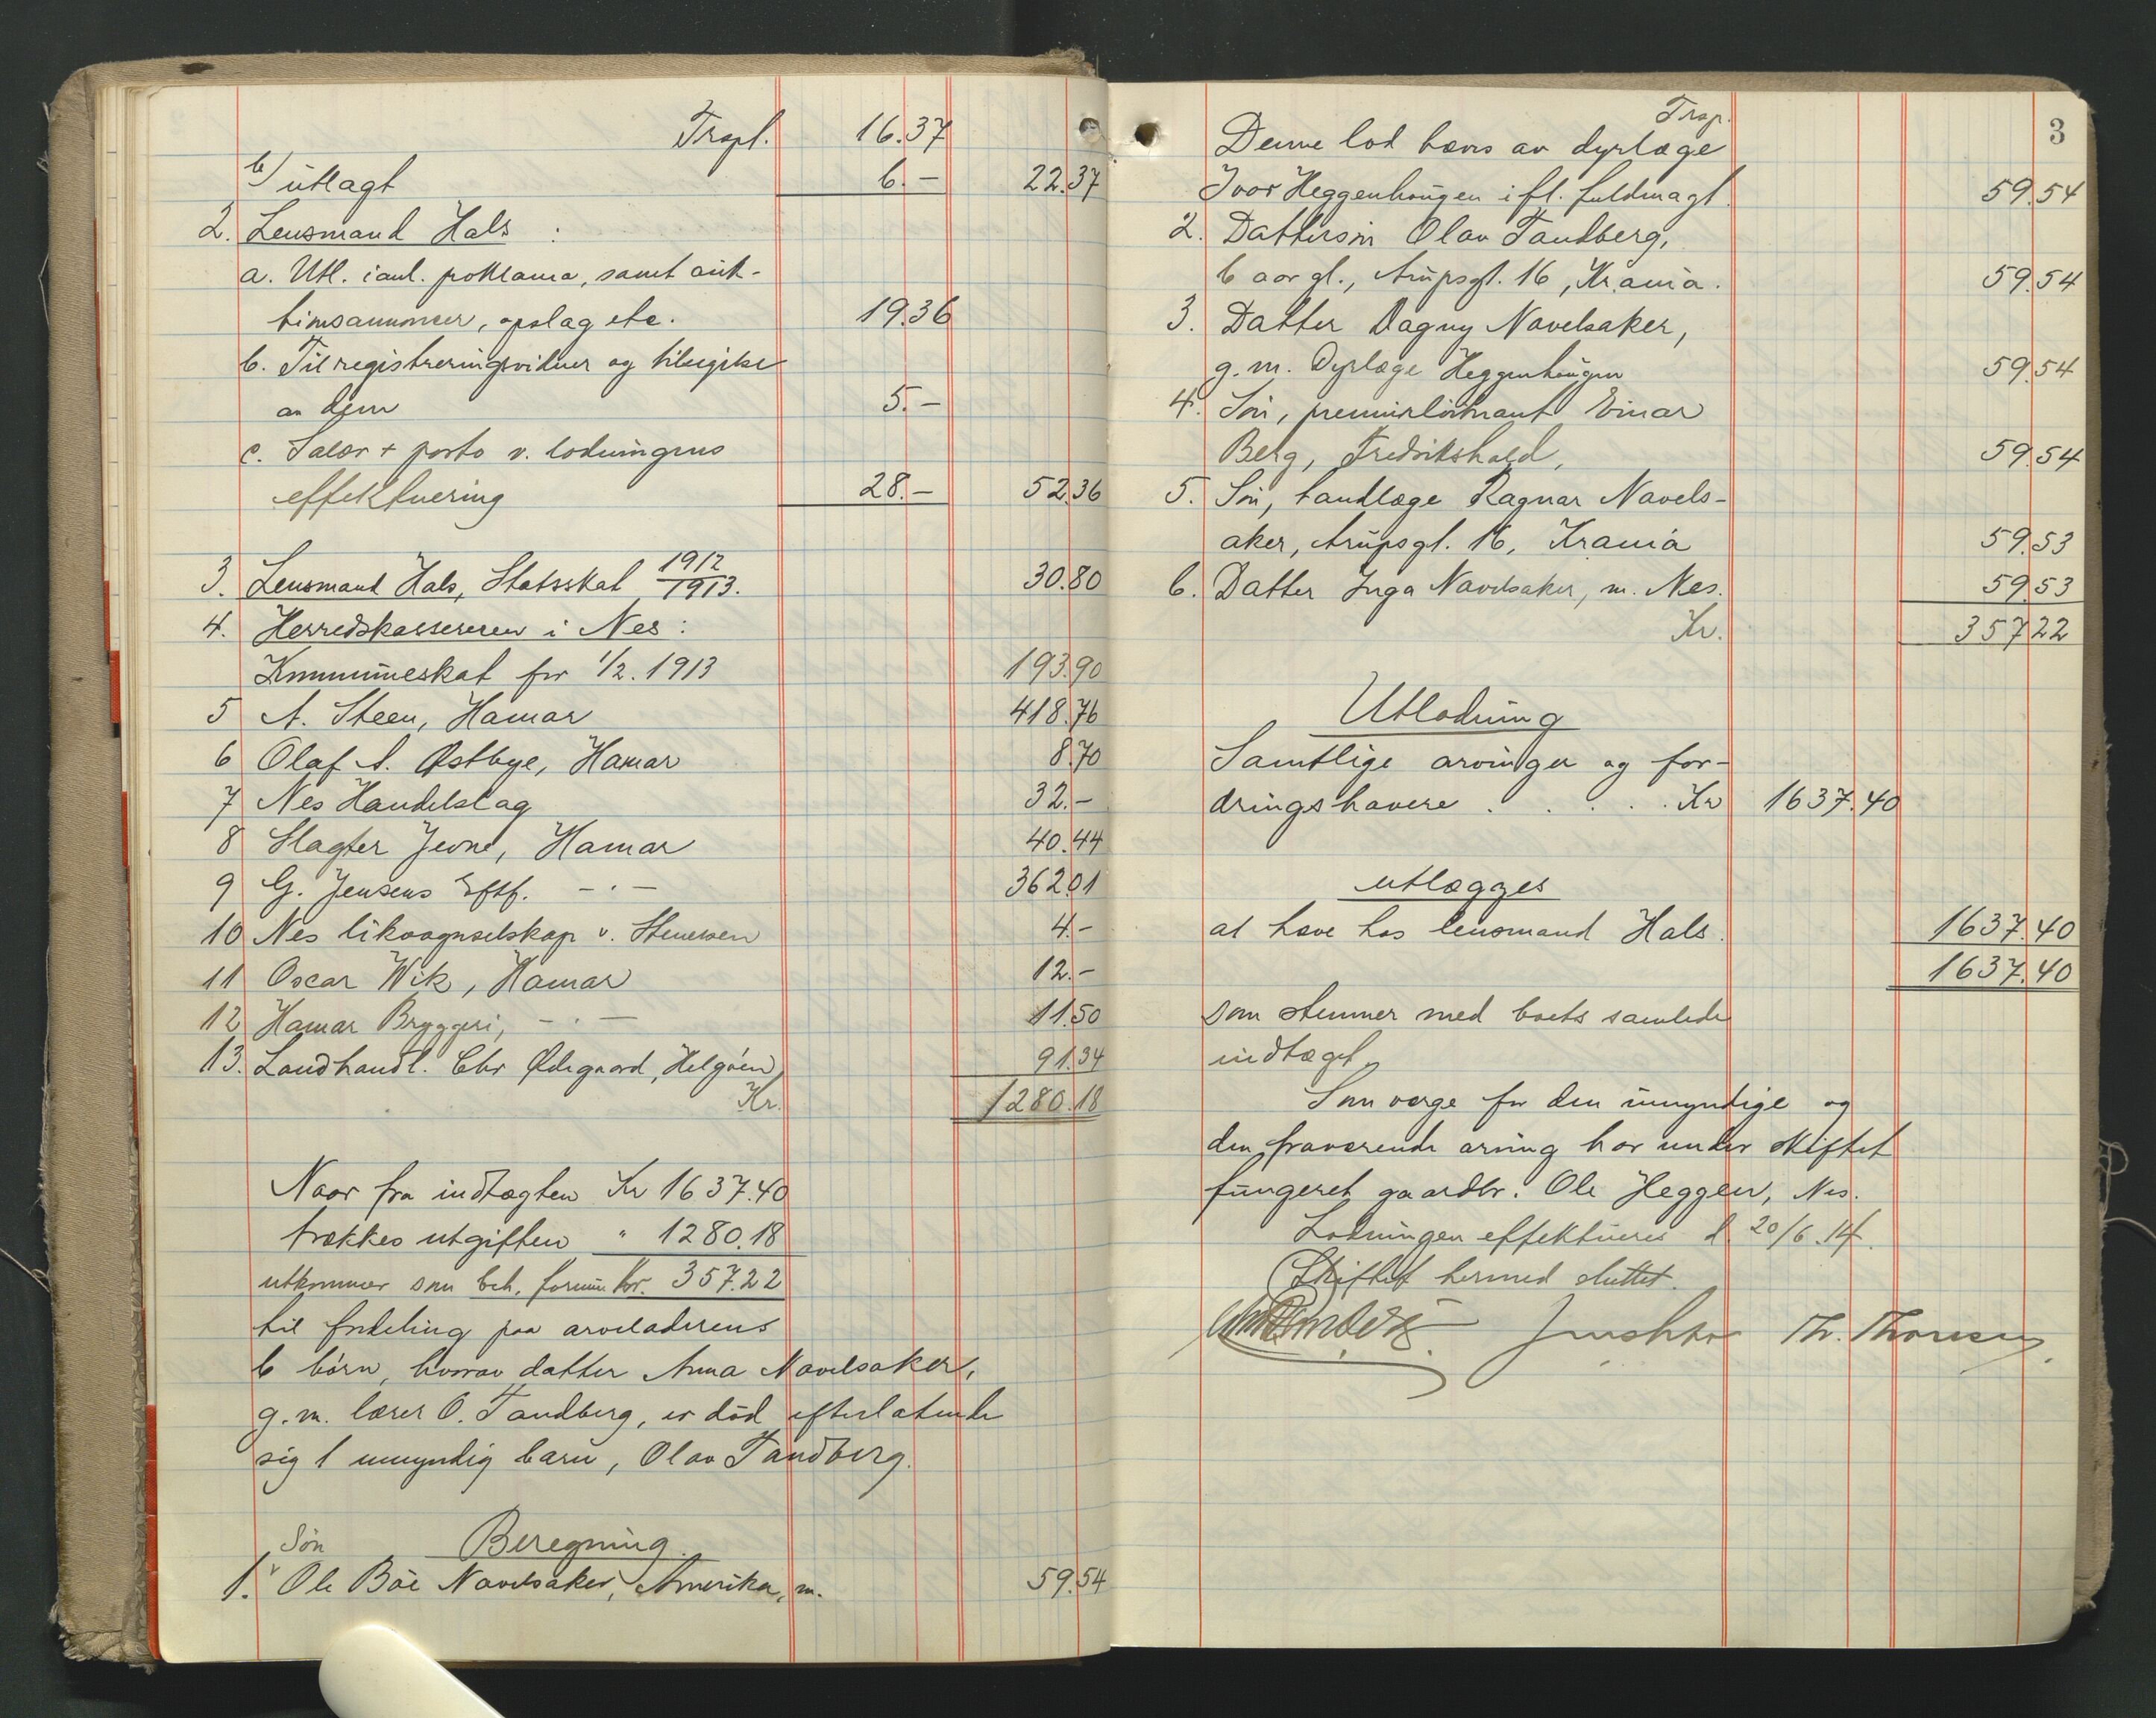 Trspt. 16.37
b/ utlagt 6.- 22.37
2. Lensmand Hals :
a. Utl. i anl. proklama, samt auk-
tionsannoncer, opslag etc. 19.36
b. Til registreringsvidner og tilsigelse
av dem 5.-
c. Salær + porto v. lodningens
effektuering 28.- 52.36
3. Lensmand Hals, Statsskat 1912/1913. 30.80
4. Herredskassereren i Nes :
Kommuneskat for 1/2. 1913 193.90
5 A. Steen, Hamar 418.76
6 Olaf A. Østbye, Hamar 8.70
7 Nes Handelslag 32.-
8 Slagter Jevne, Hamar 40.44
9 G. Jensens Eftf. -·- 362.01
10 Nes likvognselskap v. Stenersen 4.-
11 Oscar Wik, Hamar 12.-
12 Hamar Bryggeri, -·- 11.50
13. Landhandl. Chr Ødegaard, Helgøen 91.34
Kr. 1280.18
Naar fra indtægten Kr 1637.40
trækkes utgiften " 1280.18
utkommer som beh. formue kr. 357.22
til fordeling paa arveladerens
6 børn, hvorav datter Anna Navelsaker,
g.m. lærer O. Tandberg, er død efterlatende
sig 1 umyndig barn, Olav Tandberg.
Beregning.
Søn
1. Ole Böe Navelsaker, Amerika, m. 59.54
3
Trsp.
Denne lod hæves av dyrlæge
Ivar Heggenhougen i fl. fuldmagt. 59.54
2. Dattersøn Olav Tandberg,
6 aar gl., Arupsgt. 16, Kr.ania. 59.54
3. Datter Dagny Navelsaker,
g.m. Dyrlæge Heggenhougen 59.54
4. Søn, premierløitnant Einar
Berg, Fredrikshald, 59.54
5. Søn, tandlæge Ragnar Navels-
aker, Arupsgt. 16, Krania 59.53
6. Datter Inga Navelsaker, m. Nes. 59.53
Kr. 357.22
Utlodning
Samtlige arvinger og for-
dringshavere . . . . . Kr 1637.40
utlægges
at hæve hos lensmand Hals. 1637.40
1637.40
som stemmer med boets samlede
indtægt.
Som verge for den umyndige og
den fraværende arving har under skiftet
fungeret gaardbr. Ole Heggen, Nes.
Lodningen effektueres d. 20/6.14.
Skiftet hermed sluttet.
Th. Thoresen